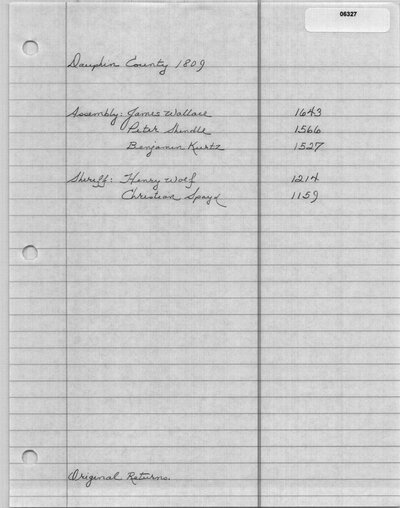 06327
Dauphin County 1809
Assembly: James Wallace 1643
Peter Shindle 1566
Benjamin Kurtz 1527
Sheriff: Henry Wolf 1214
Christian Spayd 1159
Original Returns.